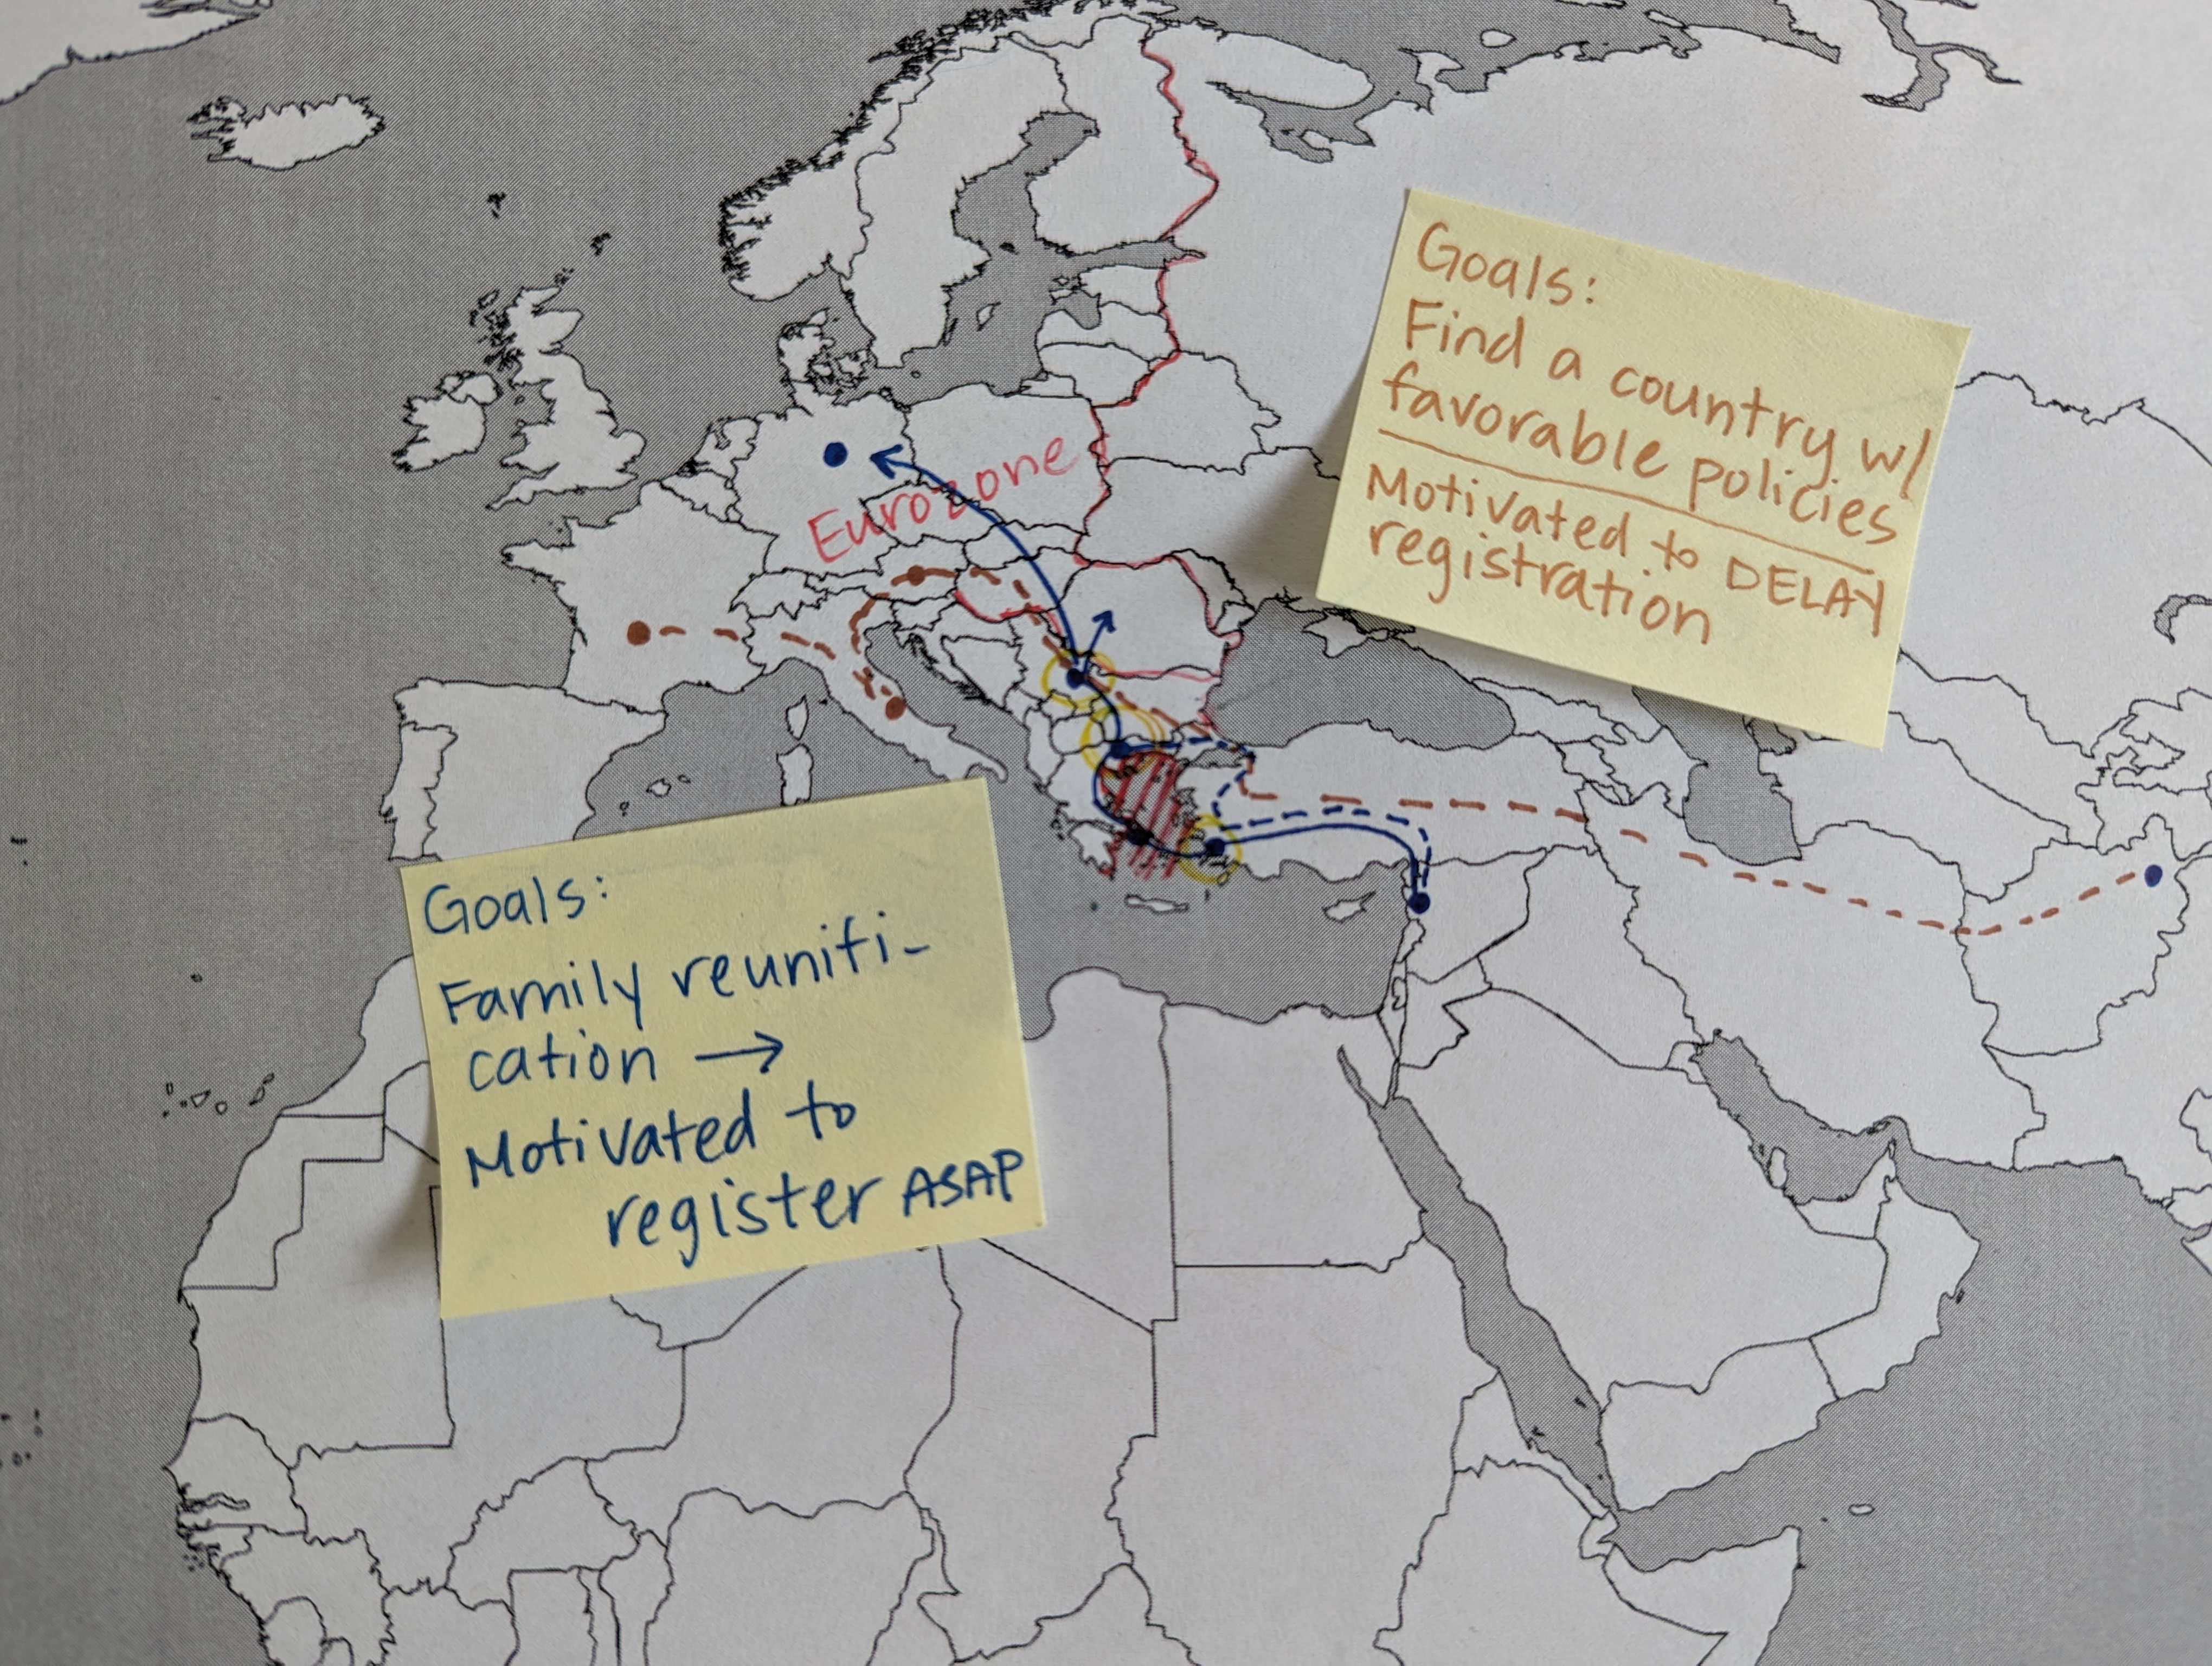 Eurozone
Goals:
Find a country w/
favorable policies
Motivated to DELAY
registration
Goals:
Family reunifi-
cation →
Motivated to
register ASAP